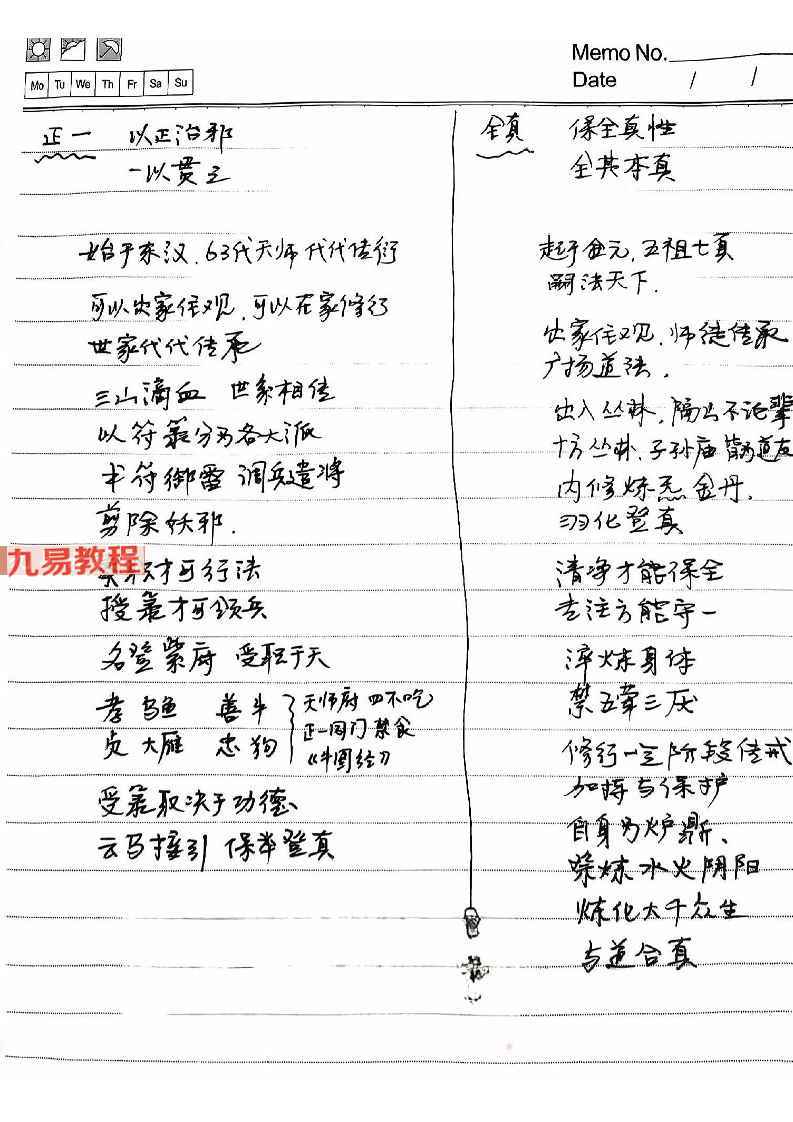 Memo No.
Date / /
Mo Tu We Th Fr Sa Su
正一 以正治邪
一以贯之
始于东汉、63代天师代代传衍
可以出家住观、可以在家修行
世家代代传承
三山滴血 世系相传
以符箓分为各大派
书符御雷 调兵遣将
剪除妖邪.
九易教程
才可行法
授箓才可领兵
名登紫府 受职于天
孝乌鱼 善牛
贞大雁 忠狗
天师府四不吃
正一同门禁食
《牛图经》
受箓取决于功德、
云马接引 保举登真
全真 保全真性
全其本真
起于金元,五祖七真
嗣法天下.
出家住观、师徒传承
广扬道法.
出入丛林、隔山不论辈
十方丛林、子孙庙皆为道友
内修炼炁金丹.
羽化登真
清净才能保全
专注方能守一
淬炼身体
禁五荤三厌
修行一定阶段传戒
加持与保护
自身为炉鼎、
炼水火阴阳
炼化大千众生
与道合真